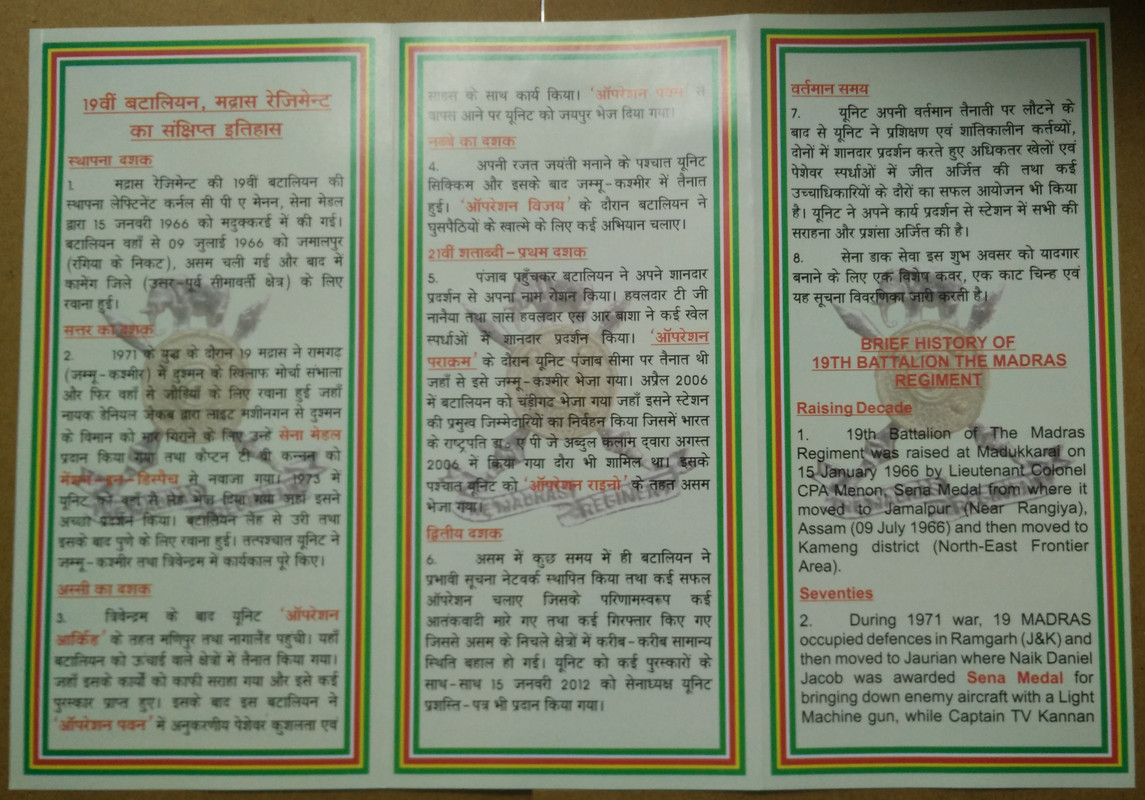 19वीं बटालियन, मद्रास रेजिमेन्ट
का संक्षिप्त इतिहास
स्थापना दशक
1. मद्रास रेजिमेंट की 19वीं बटालियन की
स्थापना लेफ्टिनेट कर्नल सी पी ए मेनन, सेना मेडल
द्वारा 15 जनवरी 1966 को मदुक्करई में की गई।
बटालियन वहाँ से 09 जुलाई 1966 को जमालपुर
(रंगिया के निकट), असम चली गई और बाद में
कामेंग जिले (उत्तर-पूर्व सीमावर्ती क्षेत्र) के लिए
रवाना हुई।
सत्तर का दशक
2. 1971 के युद्ध के दौरान 19 मद्रास ने रामगढ़
(जम्मू-कश्मीर) में दुश्मन के खिलाफ मोर्चा संभाला
और फिर वहाँ से जौड़ियाँ के लिए रवाना हुई जहाँ
नायक डेनियल जेकब द्वारा लाइट मशीनगन से दुश्मन
के विमान को मार गिराने के लिए उन्हें सेना मेडल
प्रदान किया गया तथा कैप्टन टी वी कन्नन को
मेंशन-इन-डिस्पैच से नवाजा गया। 1973 में
यूनिट को वहां से लेह भेज दिया गया जहाँ इसने
अच्छा प्रदर्शन किया। बटालियन लेह से उरी तथा
इसके बाद पुणे के लिए रवाना हुई। तत्पश्चात यूनिट ने
जम्मू-कश्मीर तथा त्रिवेन्द्रम में कार्यकाल पूरे किए।
अस्सी का दशक
3. त्रिवेन्द्रम के बाद यूनिट 'ऑपरेशन
आर्किड' के तहत मणिपुर तथा नागालैंड पहुंची। यहाँ
बटालियन को ऊंचाई वाले क्षेत्रों में तैनात किया गया।
जहाँ इसके कार्यों को काफी सराहा गया और इसे कई
पुरस्कार प्राप्त हुए। इसके बाद इस बटालियन ने
'ऑपरेशन पवन' में अनुकरणीय पेशेवर कुशलता एवं
साहस के साथ कार्य किया। 'ऑपरेशन पवन' से
वापस आने पर यूनिट को जयपुर भेज दिया गया।
नब्बे का दशक
4. अपनी रजत जयंती मनाने के पश्चात यूनिट
सिक्किम और इसके बाद जम्मू-कश्मीर में तैनात
हुई। 'ऑपरेशन विजय' के दौरान बटालियन ने
घुसपैठियों के खात्मे के लिए कई अभियान चलाए।
21वीं शताब्दी-प्रथम दशक
5. पंजाब पहुँचकर बटालियन ने अपने शानदार
प्रदर्शन से अपना नाम रोशन किया। हवलदार टी जी
नानैया तथा लांस हवलदार एस आर बाशा ने कई खेल
स्पर्धाओं में शानदार प्रदर्शन किया। 'ऑपरेशन
पराक्रम' के दौरान यूनिट पंजाब सीमा पर तैनात थी
जहाँ से इसे जम्मू-कश्मीर भेजा गया। अप्रैल 2006
में बटालियन को चंडीगढ भेजा गया जहाँ इसने स्टेशन
की प्रमुख जिम्मेदारियों का निर्वहन किया जिसमें भारत
के राष्ट्रपति डा. ए पी जे अब्दुल कलाम द्वारा अगस्त
2006 में किया गया दौरा भी शामिल था। इसके
पश्चात् यूनिट को 'ऑपरेशन राइनो' के तहत असम
भेजा गया।
द्वितीय दशक
6. असम में कुछ समय में ही बटालियन ने
प्रभावी सूचना नेटवर्क स्थापित किया तथा कई सफल
ऑपरेशन चलाए जिसके परिणामस्वरूप कई
आतंकवादी मारे गए तथा कई गिरफ्तार किए गए
जिससे असम के निचले क्षेत्रों में करीब-करीब सामान्य
स्थिति बहाल हो गई। यूनिट को कई पुरस्कारों के
साथ-साथ 15 जनवरी 2012 को सेनाध्यक्ष यूनिट
प्रशस्ति-पत्र भी प्रदान किया गया।
वर्तमान समय
7. यूनिट अपनी वर्तमान तैनाती पर लौटने के
बाद से यूनिट ने प्रशिक्षण एवं शांतिकालीन कर्तव्यों,
दोनों में शानदार प्रदर्शन करते हुए अधिकतर खेलों एवं
पेशेवर स्पर्धाओं में जीत अर्जित की तथा कई
उच्चाधिकारियों के दौरों का सफल आयोजन भी किया
है। यूनिट ने अपने कार्य प्रदर्शन से स्टेशन में सभी की
सराहना और प्रशंसा अर्जित की है।
8. सेना डाक सेवा इस शुभ अवसर को यादगार
बनाने के लिए एक विशेष कवर, एक काट चिन्ह एवं
यह सूचना विवरणिका जारी करती है।
BRIEF HISTORY OF
19TH BATTALION THE MADRAS
REGIMENT
Raising Decade
1. 19th Battalion of The Madras
Regiment was raised at Madukkarai on
15 January 1966 by Lieutenant Colonel
CPA Menon, Sena Medal from where it
moved to Jamalpur (Near Rangiya),
Assam (09 July 1966) and then moved to
Kameng district (North-East Frontier
Area).
Seventies
2. During 1971 war, 19 MADRAS
occupied defences in Ramgarh (J&K) and
then moved to Jaurian where Naik Daniel
Jacob was awarded Sena Medal for
bringing down enemy aircraft with a Light
Machine gun, while Captain TV Kannan
MADRAS REGIMENT
MADRAS REGIMENT